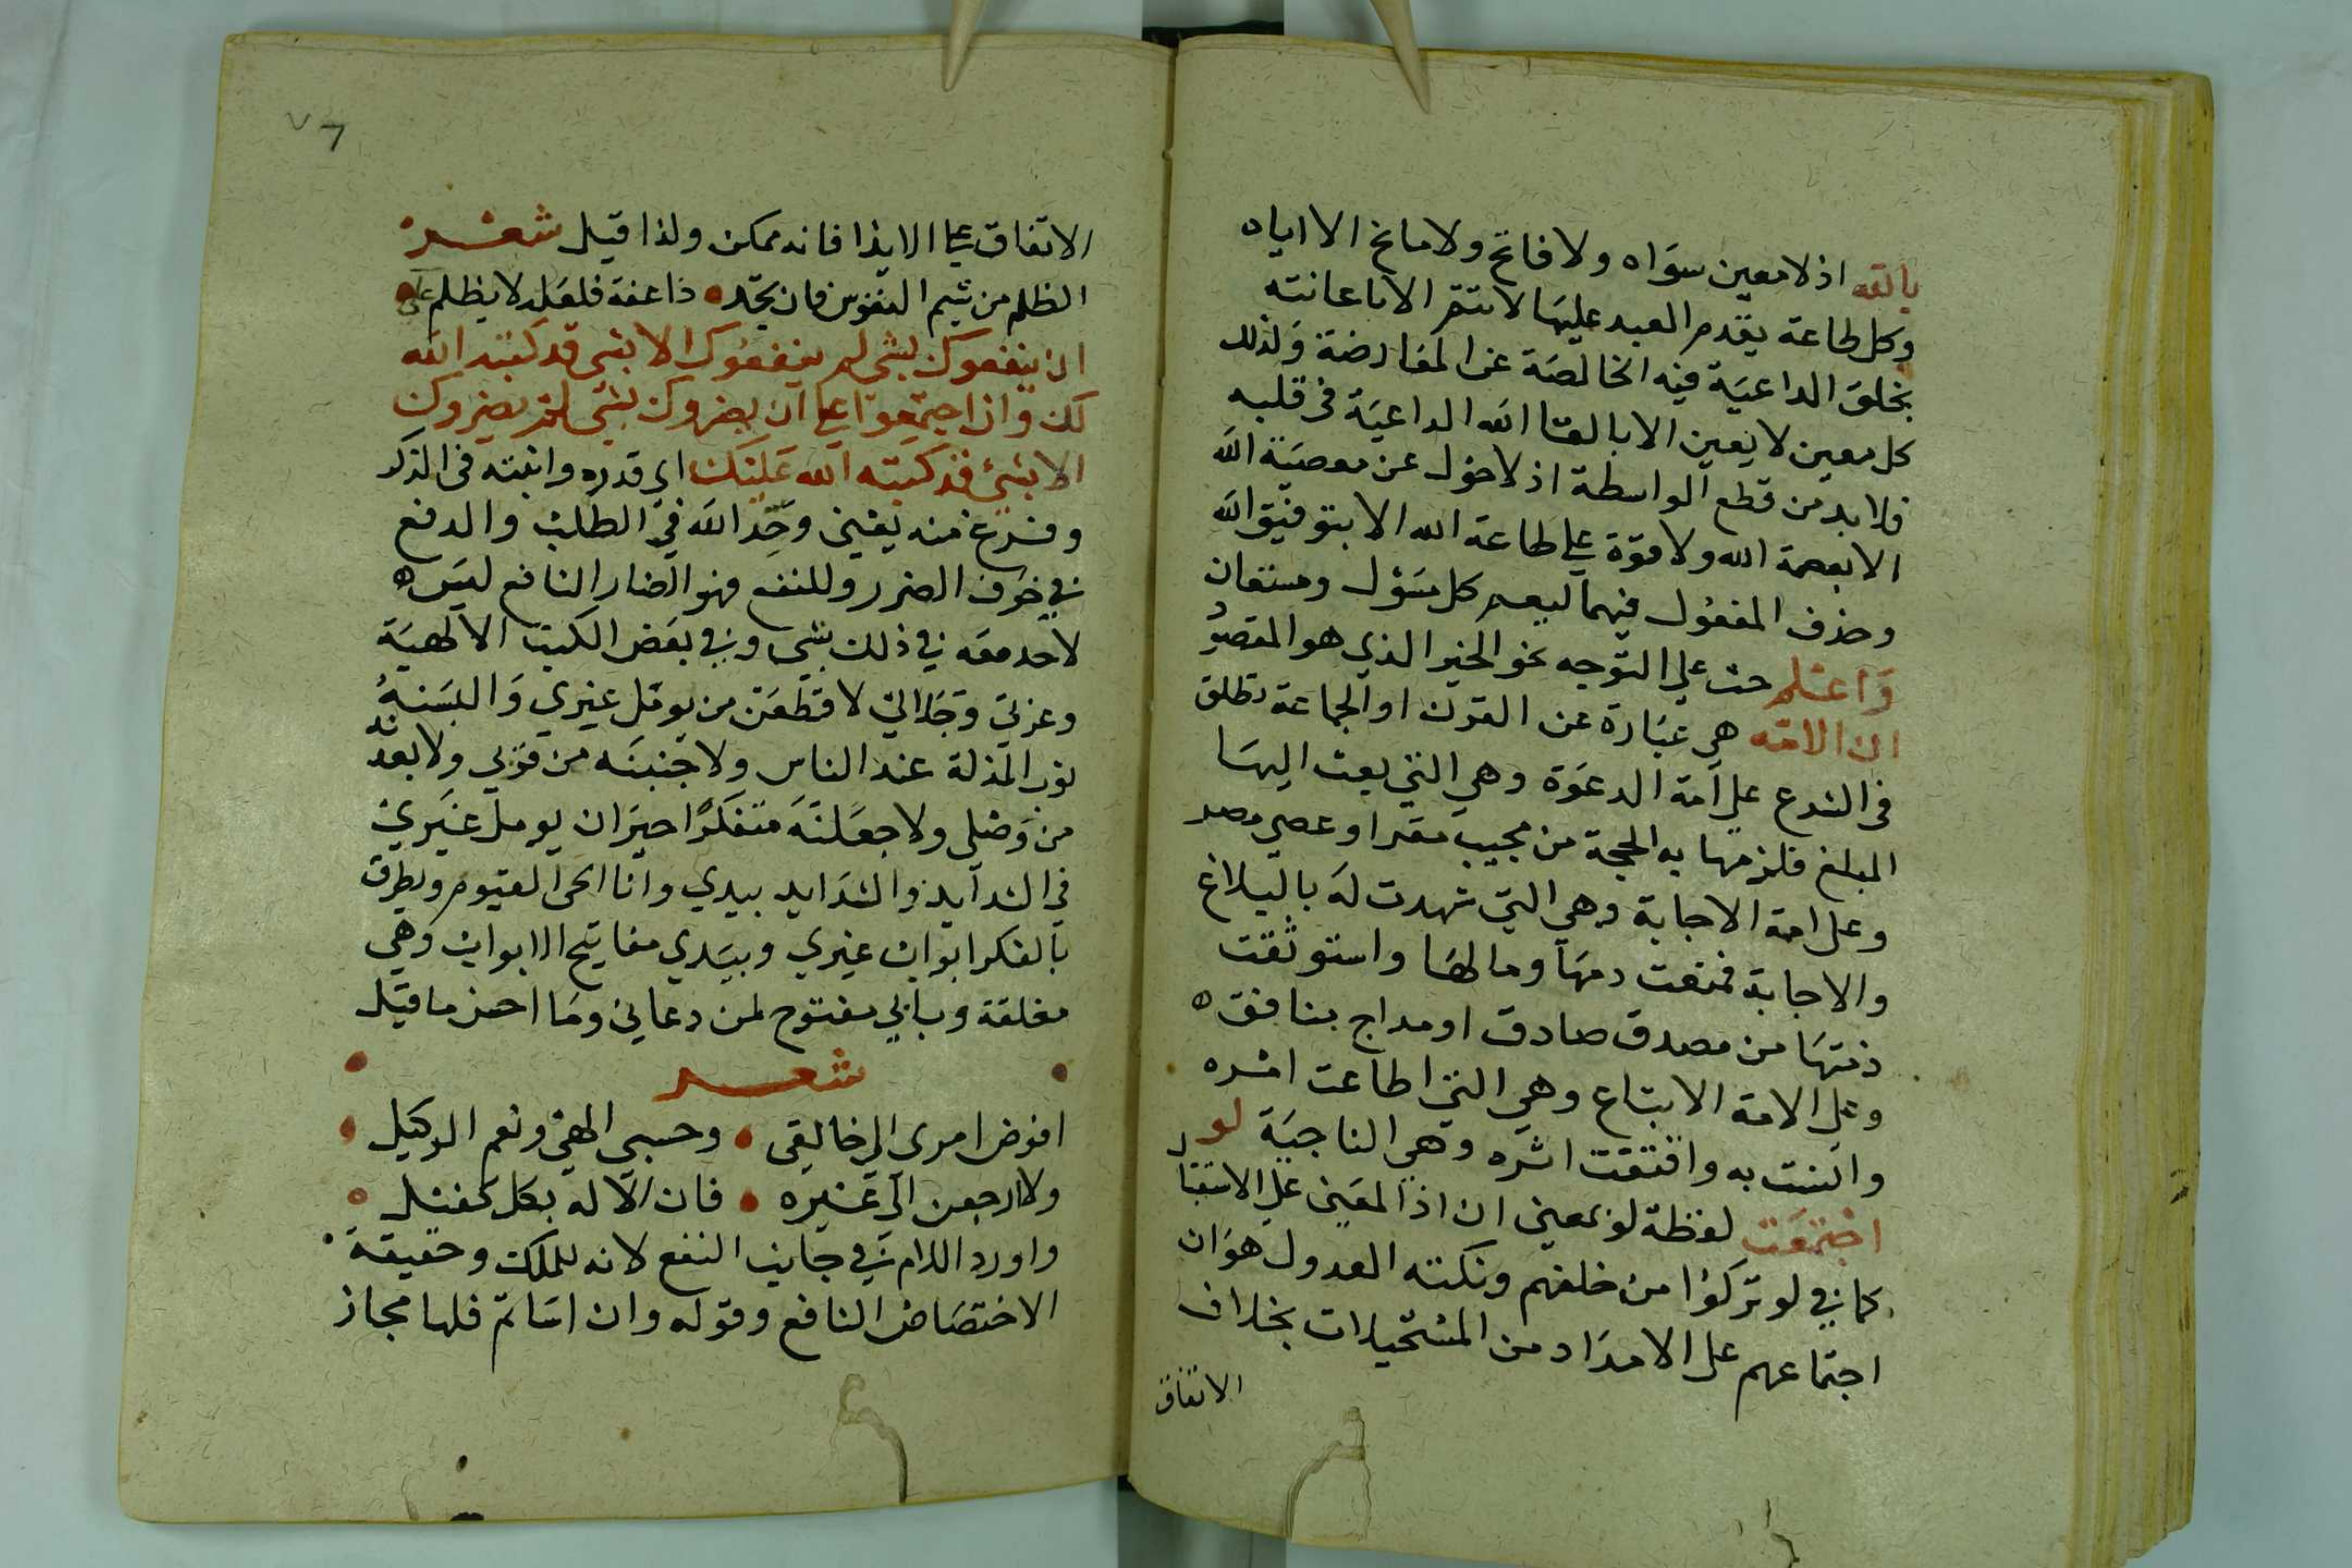 بالله اذ لا معين سواه ولا فاتح ولا مانح الا اياه
وكل طاعة يقدم العبد عليها لا تتم الا باعانته
بخلق الداعية فيه الخالصة عن المعارضة ولذلك
كل معين لا يعين الا بالقا الله الداعية في قلبه
فلا بد من قطع الواسطة اذ لا حول عن معصية الله
الا بعصمة الله ولا قوة على طاعة الله الا بتوفيق الله
وحذف المفعول فيهما ليعم كل مسؤل ومستعان
واعلم حث على التوجه نحو الخير الذي هو المقصود
ان الامة هي عبارة عن القرن او الجماعة تطلق
في الشرع على امة الدعوة وهي التي بعث اليها
المبلغ فلزمها به الحجة من مجيب مقر او عصي مصر
وعلى امة الاجابة وهي التي شهدت له بالبلاغ
والاجابة فمنعت دمها ومالها واستوثقت
ذمتها من مصدق صادق او مداج بنافق ه
وعلى الامة الاتباع وهي التي اطاعت امره
وائنست به واقتفت اثره وهي الناجية لو
اجتمعت لفظة لو بمعنى ان اذ المعنى على الاستقبال
كما في لو تركوا من خلفهم ونكتته العدول هو ان
اجتماعهم على الامداد من المستحيلات بخلاف
الاتفاق
٧ 7
الاتفاق على الايذا فانه ممكن ولذا قيل شعر
الظلم من شيم النفوس فان تجد ذا عفة فلعلة لا يظلم على
ان ينفعوك بشي لم ينفعوك الا بشي قد كتبه الله
لك وان اجتمعوا على ان يضروك بشي لم يضروك
الا بشئ قد كتبه الله عليك اي قدره واثبته في الذكر
وفرغ منه يعني وحد الله في الطلب والدفع
في خوف الضرر وللنفع فهو الضار النافع ليس ه
لاحد معه في ذلك شي وفي بعض الكتب الالهية
وعزتي وجلالي لاقطعن من يومل غيري والبسنه
ثوب المذلة عند الناس ولاجنبنه من قربي ولابعدنه
من وصلي ولاجعلنه متفكرا حيران يومل غيري
في الشدايد والشدايد بيدي وانا الحي القيوم ويطرق
بالفكر ابواب غيري وبيدي مفاتيح الابواب وهي
مغلقة وبابي مفتوح لمن دعاني وما احسن ما قيل
شعر
افوض امري الى خالقي وحسبي الهي ونعم الوكيل
ولا ارجعن الى غيره فان الاله بكل كفيل
واورد اللام في جانب النفع لانه للملك وحقيقة
الاختصاص النافع وقوله وان اساتم فلها مجاز